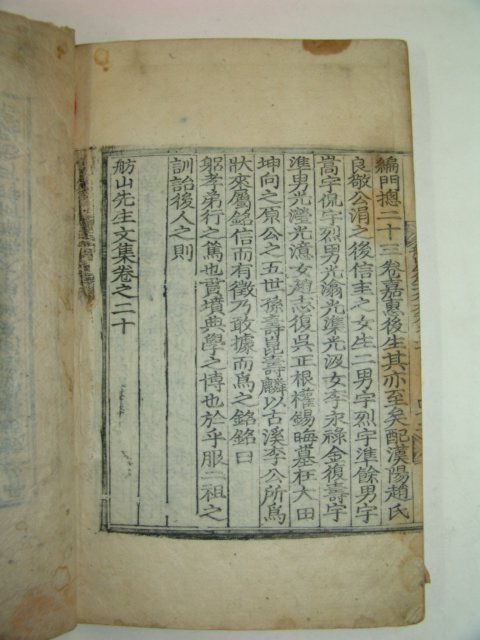 編門摠二十三卷嘉惠後生其亦至矣配漢陽趙氏
良敬公涓之後信圭之女生二男宇烈宇準餘男宇
嵩宇侃宇烈男光瀚光準光汲女李永祿金復壽宇
準男光瀅光澺女趙志復吳正根權錫晦墓在大田
坤向之原公之五世孫壽崑壽麟以古溪李公所爲
狀來屬銘信而有徵乃敢據而爲之銘銘曰
躬孝弟行之篤也賁墳典學之博也於乎服一祖之
訓詒後人之則
舫山先生文集卷之二十